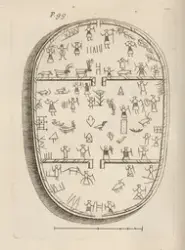 P. 99